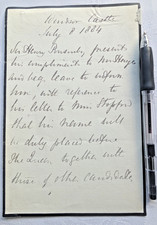 Windsor Castle
July 8 1884
Sir Henry Ponsonby presents
his compliments to
and begs leave to inform
him with reference to
his letter to Miss Stopford
that his name will
be duly placed before
The Queen together with
those of other candidates